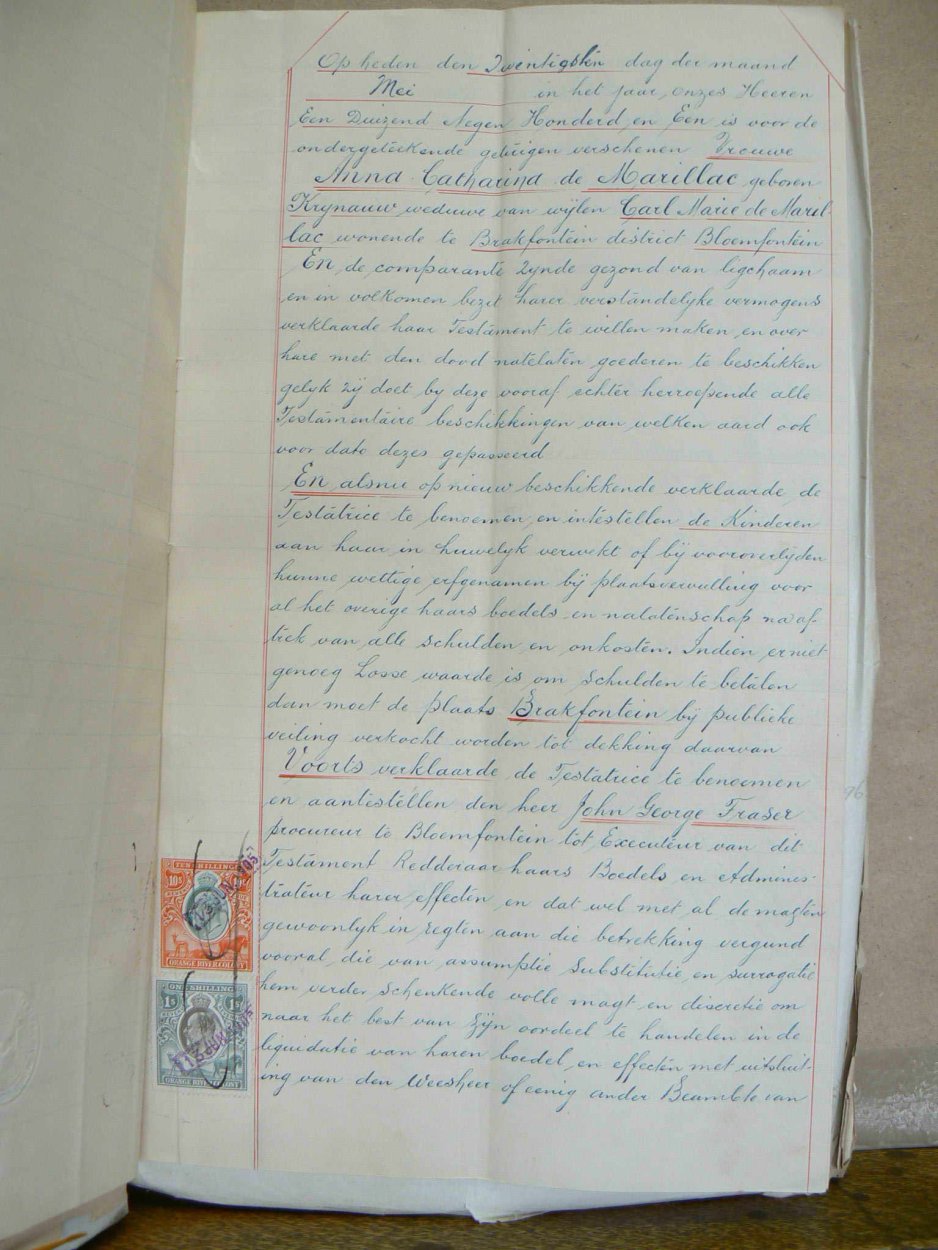 Op heden den Twentigsten dag der maand
Mei in het jaar onzes Heeren
Een Duizend Negen Honderd en Een is voor de
ondergeteekende getuigen verschenen Vrouwe
Anna Catharina de Marillac geboren
Krynauw weduwe van wijlen Carl Marie de Maril-
lac wonende te Brakfontein district Bloemfontein
En de comparante zynde gezond van ligchaam
en in volkomen bezit harer verstandelyke vermogens
verklaarde haar Testament te willen maken en over
hare met den dood natelaten goederen te beschikken
gelyk zij doet by deze vooraf echter herroepende alle
Testamentaire beschikkingen van welken aard ook
voor dato dezes gepasseerd
En alsnu op nieuw beschikkende verklaarde de
Testatrice te benoemen en intestellen de Kinderen
aan haar in huwelyk verwekt of bij vooroverlyden
hunne wettige erfgenamen bij plaatsvervulling voor
al het overige haars boedels en nalatenschap na af-
trek van alle schulden en onkosten. Indien er niet
genoeg Losse waarde is om schulden te betalen
dan moet de plaats Brakfontein bij publieke
veiling verkocht worden tot dekking daarvan
Voorts verklaarde de Testatrice te benoemen
en aantestellen den heer John George Fraser
procureur te Bloemfontein tot Executeur van dit
Testament Redderaar haars Boedels en Adminis-
trateur harer effecten en dat wel met al de magten
gewoonlyk in regten aan die betrekking vergund
vooral die van assumptie substitutie en surrogatie
hem verder schenkende volle magt en discretie om
naar het best van zijn oordeel te handelen in de
liquidatie van haren boedel en effecten met uitsluit-
ing van den Weesheer of eenig ander Beambte van
TEN SHILLINGS
10s
ORANGE RIVER COLONY
13 JUN 1905
ONE SHILLING
1s 1s
ORANGE RIVER COLONY
13 JUN 1905
96